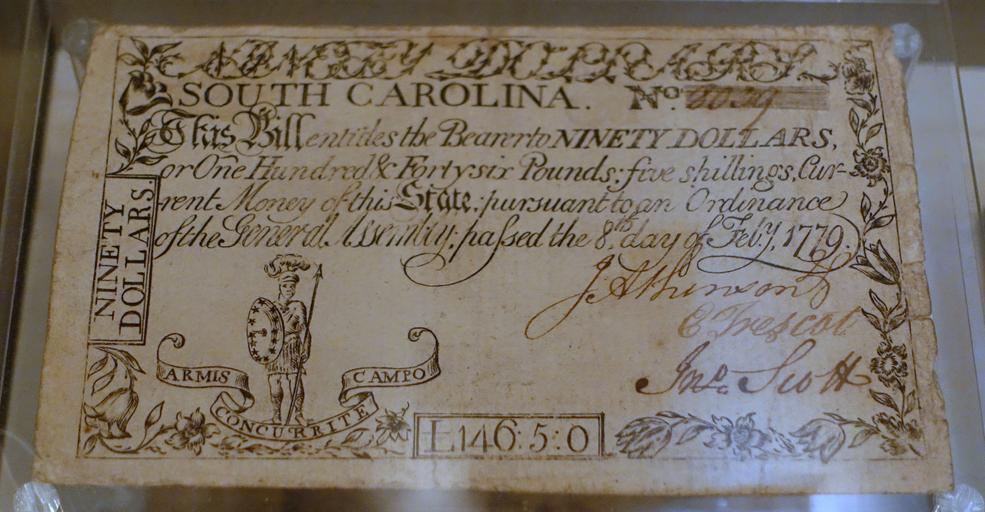 SOUTH CAROLINA. No.
This Bill entitles the Bearer to NINETY DOLLARS,
or One Hundred & Forty six Pounds; five shillings, Cur-
rent Money of this State; pursuant to an Ordinance
of the General Assembly; passed the 8th day of Feby. 1779.
NINETY
DOLLARS
J. Atkinson
E Trescot
Jno. Scott
ARMIS
CONCURRITE
CAMPO
£146:5:0